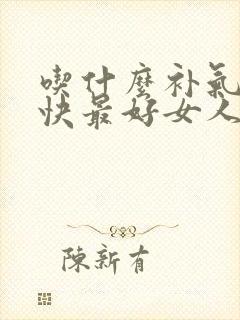 喫什麼补氣
快最好女人
陳新有